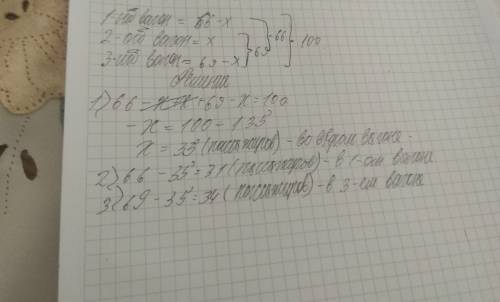 1-ый вагон = 66 - x
2-ой вагон = x } 66 } 100
3-ий вагон = 69 - x } 69
Решение
1) 66 - x + x + 69 - x = 100
- x = 100 - 135
x = 35 (пассажиров) - во втором вагоне.
2) 66 - 35 = 31 (пассажиров) - в 1-ом вагоне
3) 69 - 35 = 34 (пассажиров) - в 3-ем вагоне